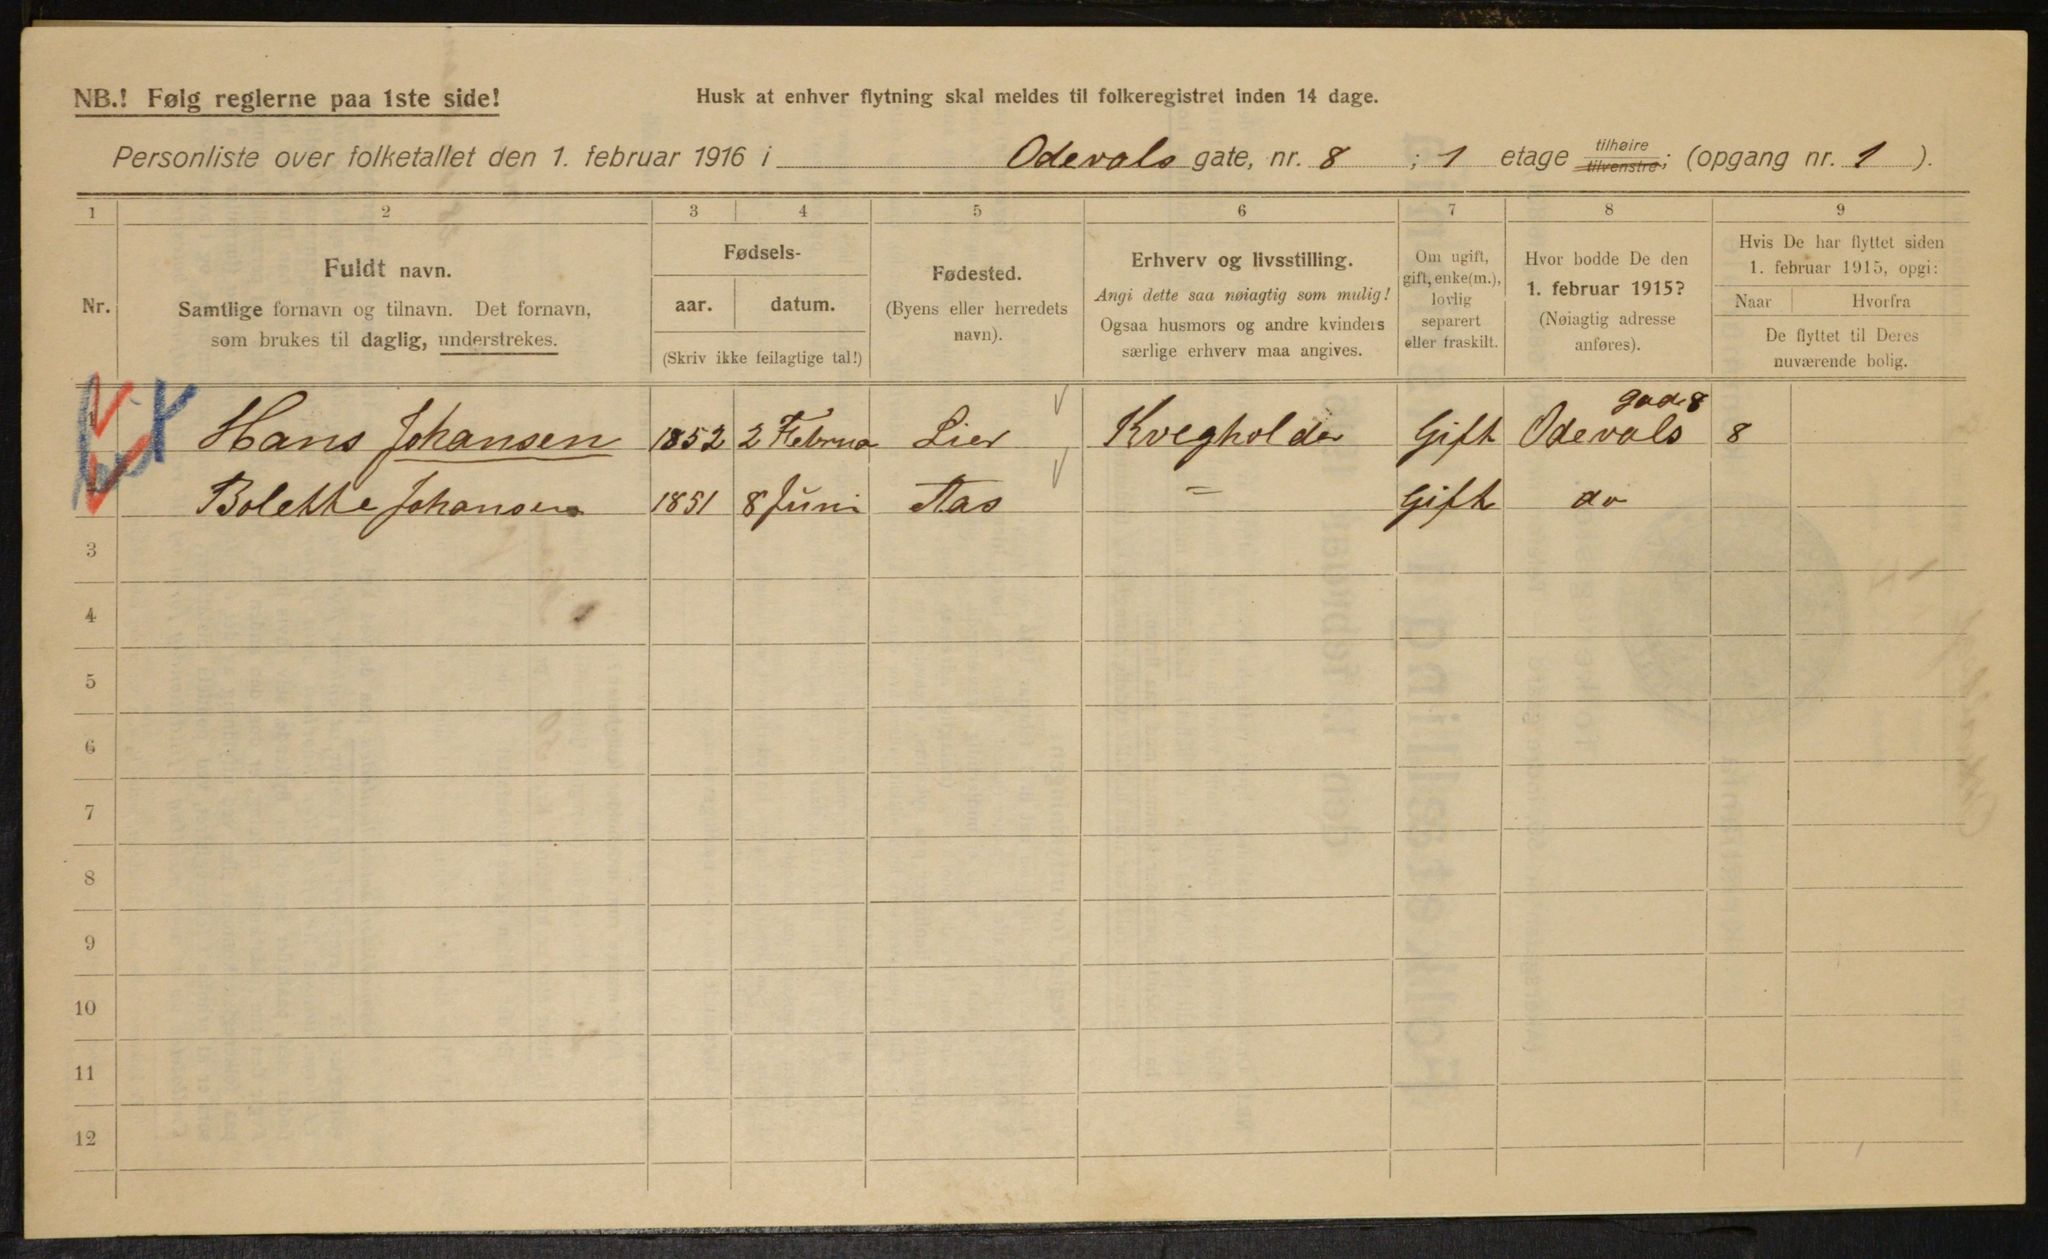 NB.! Følg reglerne paa 1ste side!
Husk at enhver flytning skal meldes til folkeregistret inden 14 dage.
Personliste over folketallet den 1. februar 1916 i Odevals gate, nr. 8 ; 1 etage tilhøire tilvenstre; (opgang nr. 1 ).
1 2 3 4 5 6 7 8 9
Nr.
Fuldt navn.
Samtlige fornavn og tilnavn. Det fornavn,
som brukes til daglig, understrekes.
Fødsels-
aar. datum.
(Skriv ikke feilagtige tal!)
Fødested.
(Byens eller herredets
navn).
Erhverv og livsstilling.
Angi dette saa nøiagtig som mulig!
Ogsaa husmors og andre kvinders
særlige erhverv maa angives.
Om ugift,
gift, enke(m.),
lovlig
separert
eller fraskilt.
Hvor bodde De den
1. februar 1915?
(Nøiagtig adresse
anføres).
Hvis De har flyttet siden
1. februar 1915, opgi:
Naar Hvorfra
De flyttet til Deres
nuværende bolig.
Hans Johansen 1852 2 Februa Lier Kvegholder Gift Odevals gade 8 8
Bolette Johansen 1851 8 Juni Aas = Gift do
3
4
5
6
7
8
9
10
11
12